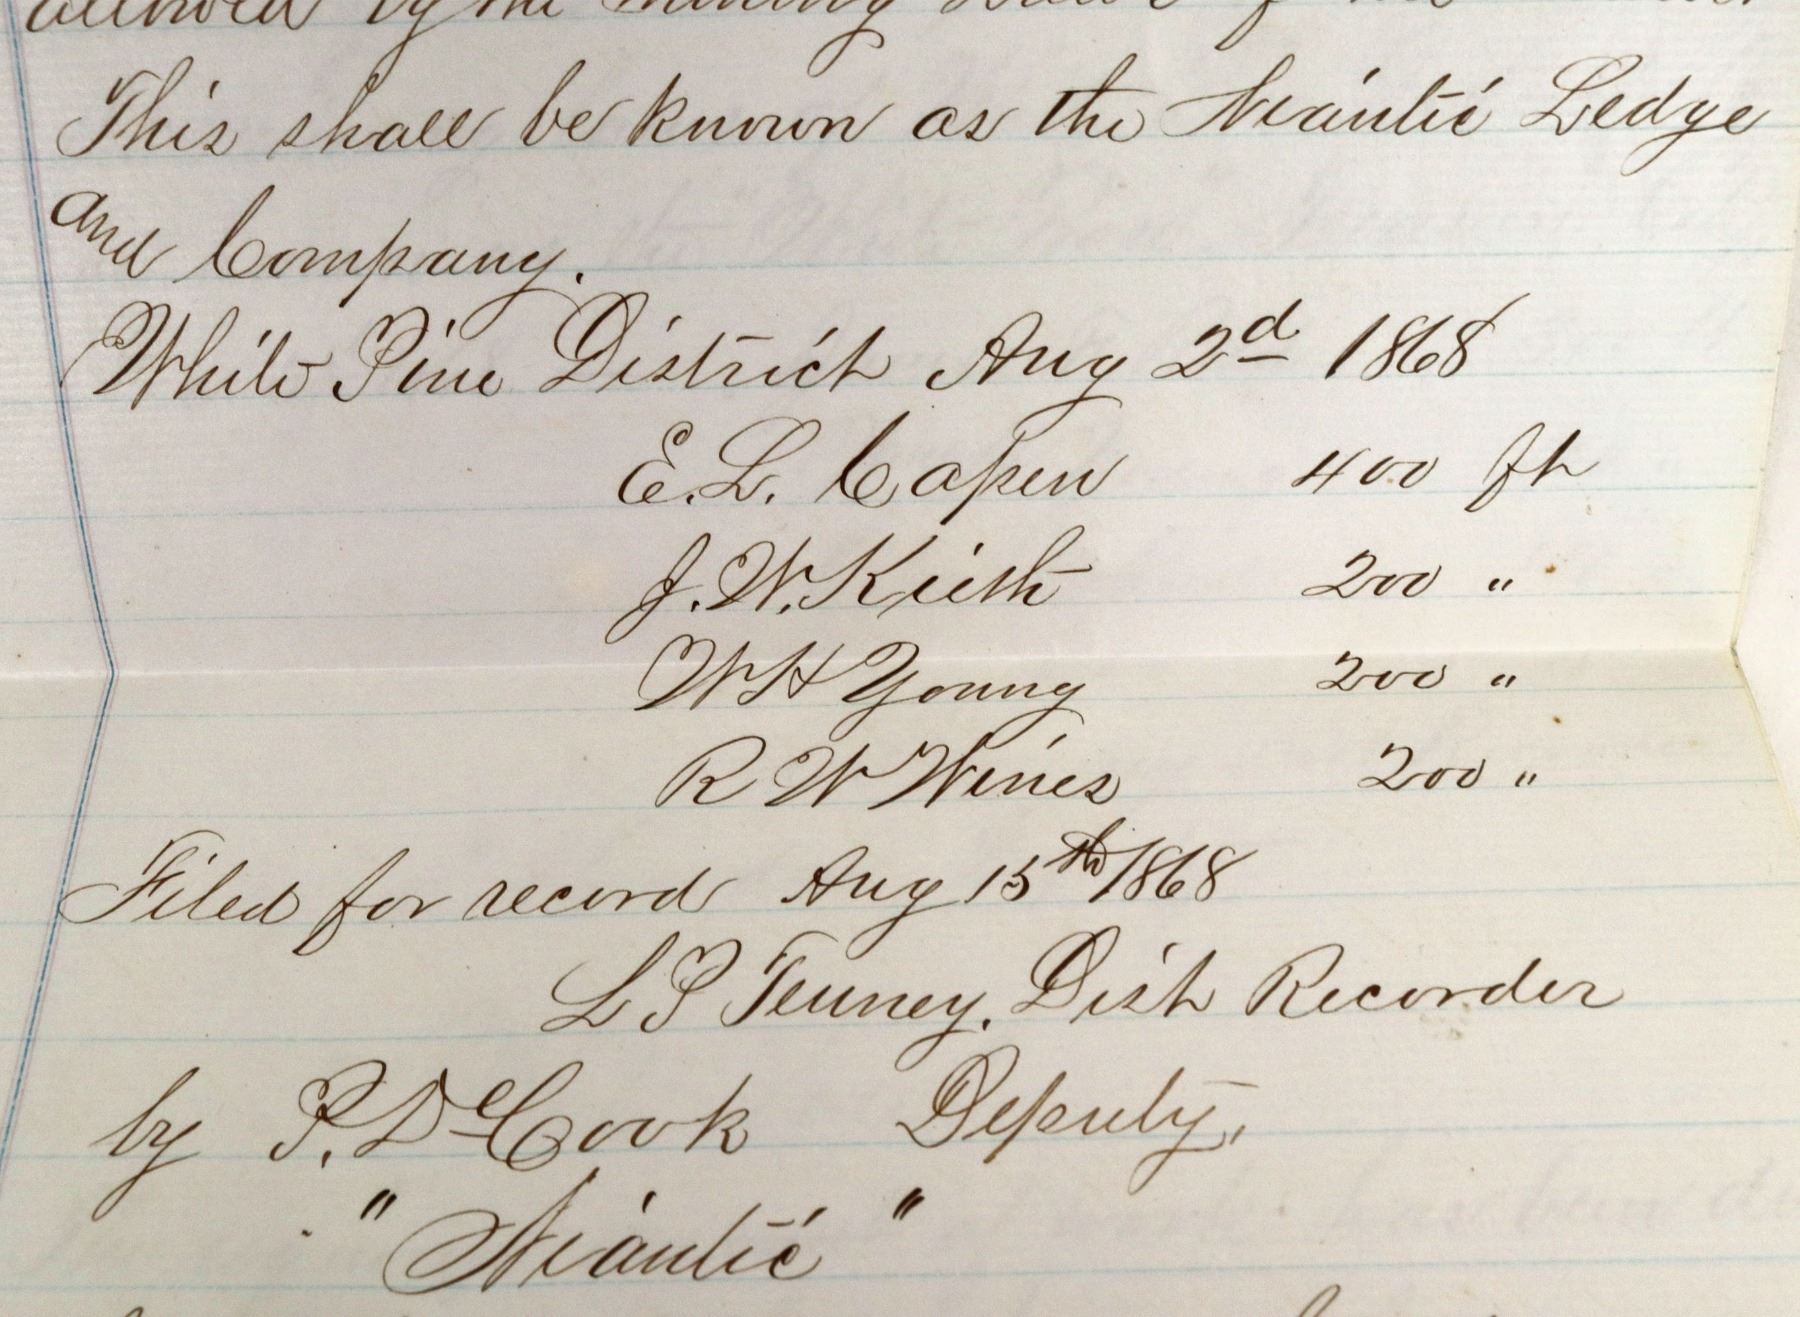 allowed by the mining laws of
This shall be known as the Niantic Ledge
and Company.
White Pine District Aug 2d 1868
E. L. Capen 400 ft
J. W. Keith 200 "
W H Young 200 "
R W Wines 200 "
Filed for record Aug 15th 1868
L P Tenney. Dist Recorder
by P. De Cook Deputy.
" Niantic "